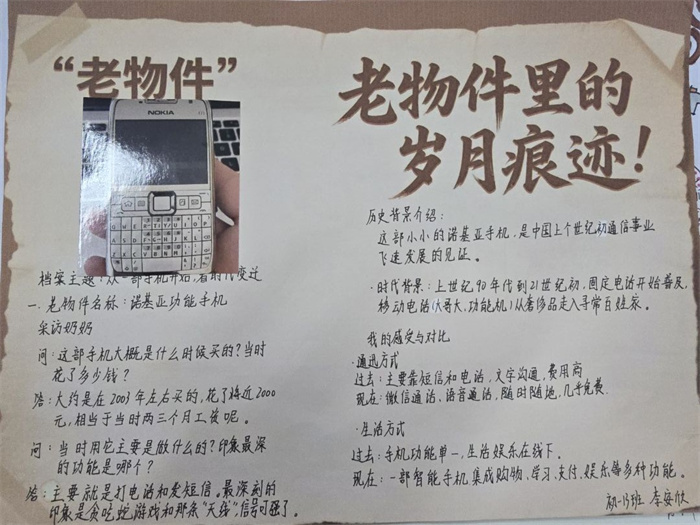 “老物件”
NOKIA
档案主题：从一部手机开始，看时代变迁
一、老物件名称：诺基亚功能手机
采访奶妈
问：这部手机大概是什么时候买的？当时
花了多少钱？
答：大约是在2003年左右买的，花了将近2000
元，相当于当时两三个月工资呢。
问：当时用它主要是做什么的？印象最深
的功能是哪个？
答：主要就是打电话和发短信。最深刻的
印象是贪吃蛇游戏和那条“天线”信号可强了。
老物件里的
岁月痕迹！
历史背景介绍：
这部小小的诺基亚手机，是中国上个世纪初通信事业
飞速发展的见证。
·时代背景：上世纪90年代到21世纪初，固定电话开始普及，
移动电话（大哥大、功能机）从奢侈品走入寻常百姓家。
我的感受与对比
·通迅方式
过去：主要靠短信和电话，文字沟通，费用高
现在：微信通话、语音通话，随时随地，几乎免费.
·生活方式
过去：手机功能单一，生活娱乐在线下。
现在：一部智能手机，集成购物、学习、支付、娱乐等多种功能。
初一13班 李安欣